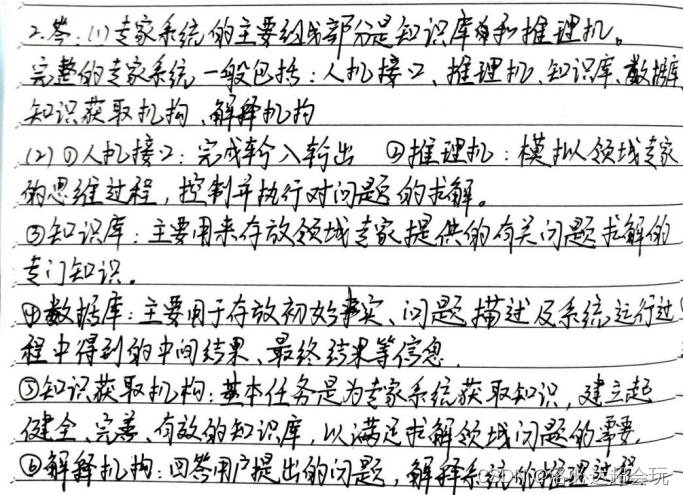 2.答:(1)专家系统的主要组成部分是知识库和推理机。
完整的专家系统一般包括:人机接口、推理机、知识库、数据库
知识获取机构、解释机构
(2)①人机接口:完成输入输出 ②推理机:模拟领域专家
的思维过程,控制并执行对问题的求解。
③知识库:主要用来存放领域专家提供的有关问题求解的
专门知识。
④数据库:主要用于存放初始事实、问题描述及系统运行过
程中得到的中间结果、最终结果等信息.
⑤知识获取机构:基本任务是为专家系统获取知识,建立起
健全、完善、有效的知识库,以满足求解领域问题的需要.
⑥解释机构:回答用户提出的问题,解释系统的推理过程